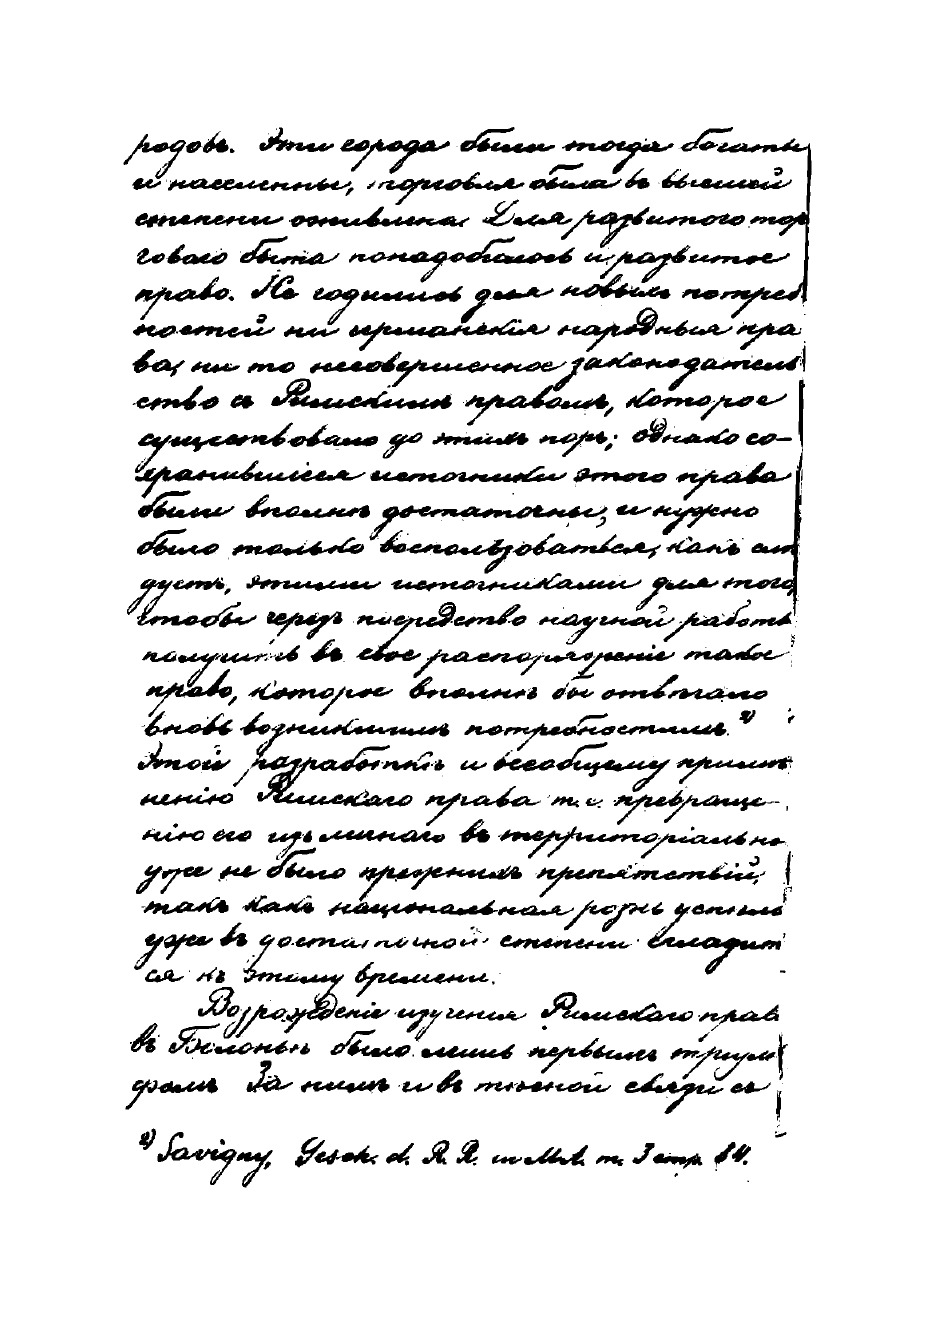 родовъ. Эти города были тогда богаты
и населенны, торговля была въ высшей
степени оживлена. Для развитого тор
говаго быта понадобилось и развитое
право. Не годились для новыхъ потреб
ностей ни германскія народныя пра
ва, ни то несовершенное законодатель
ство съ Римскимъ правомъ, которое
существовало до этихъ поръ; однако со-
хранившіеся источники этого права
были вполнѣ достаточны, и нужно
было только воспользоваться, какъ слѣ
дуетъ, этими источниками для того,
чтобы черезъ посредство научной работы
получить въ свое распоряженіе такое
право, которое вполнѣ бы отвѣчало
вновь возникшимъ потребностямъ ²⁾
Этой разработкѣ и всеобщему примѣ
ненію Римскаго права т. е. превраще-
нію его изъ личнаго въ территоріальное
уже не было прежнихъ препятствій,
такъ какъ національная рознь успѣла
уже въ достаточной степени сгладить
ся къ этому времени.
Возрожденіе изученія Римскаго права
въ Болоньѣ было лишь первымъ тріум
фомъ За нимъ и въ тѣсной связи съ
²⁾ Savigny, Gesch. d. R. R. in M.A. т. 3 стр. 84.